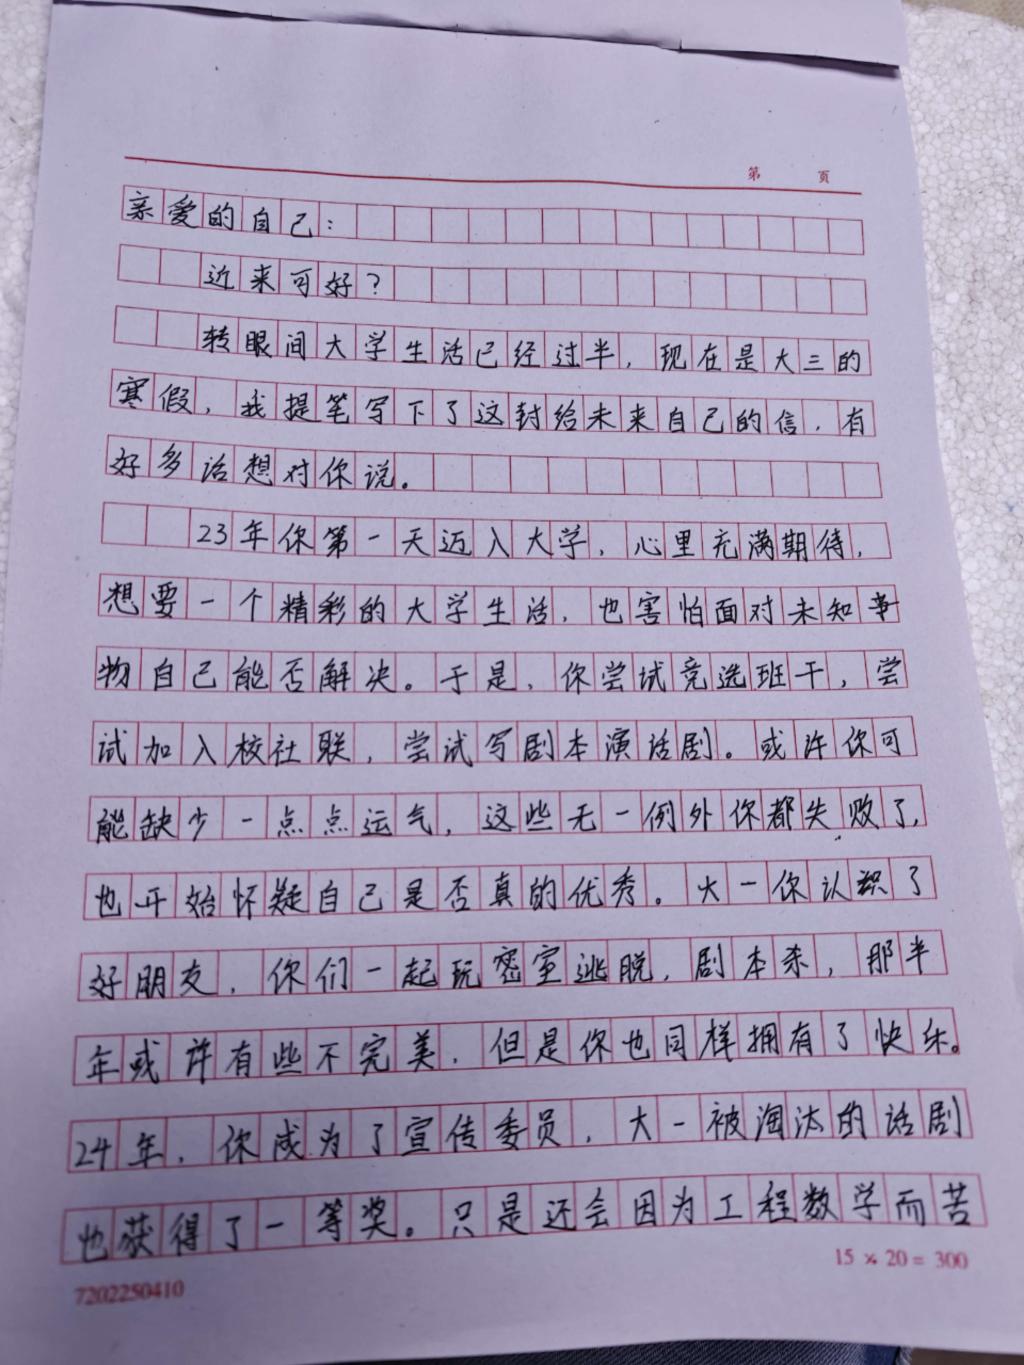 第 页
亲爱的自己：
近来可好？
转眼间大学生活已经过半，现在是大三的
寒假，我提笔写下了这封给未来自己的信，有
好多话想对你说。
23年你第一天迈入大学，心里充满期待，
想要一个精彩的大学生活，也害怕面对未知事
物自己能否解决。于是，你尝试竞选班干，尝
试加入校社联，尝试写剧本演话剧。或许你可
能缺少一点点运气，这些无一例外你都失败了，
也开始怀疑自己是否真的优秀。大一你认识了
好朋友，你们一起玩密室逃脱，剧本杀，那半
年或许有些不完美，但是你也同样拥有了快乐。
24年，你成为了宣传委员，大一被淘汰的话剧
也获得了一等奖。只是还会因为工程数学而苦
15 × 20 = 300
7202250410